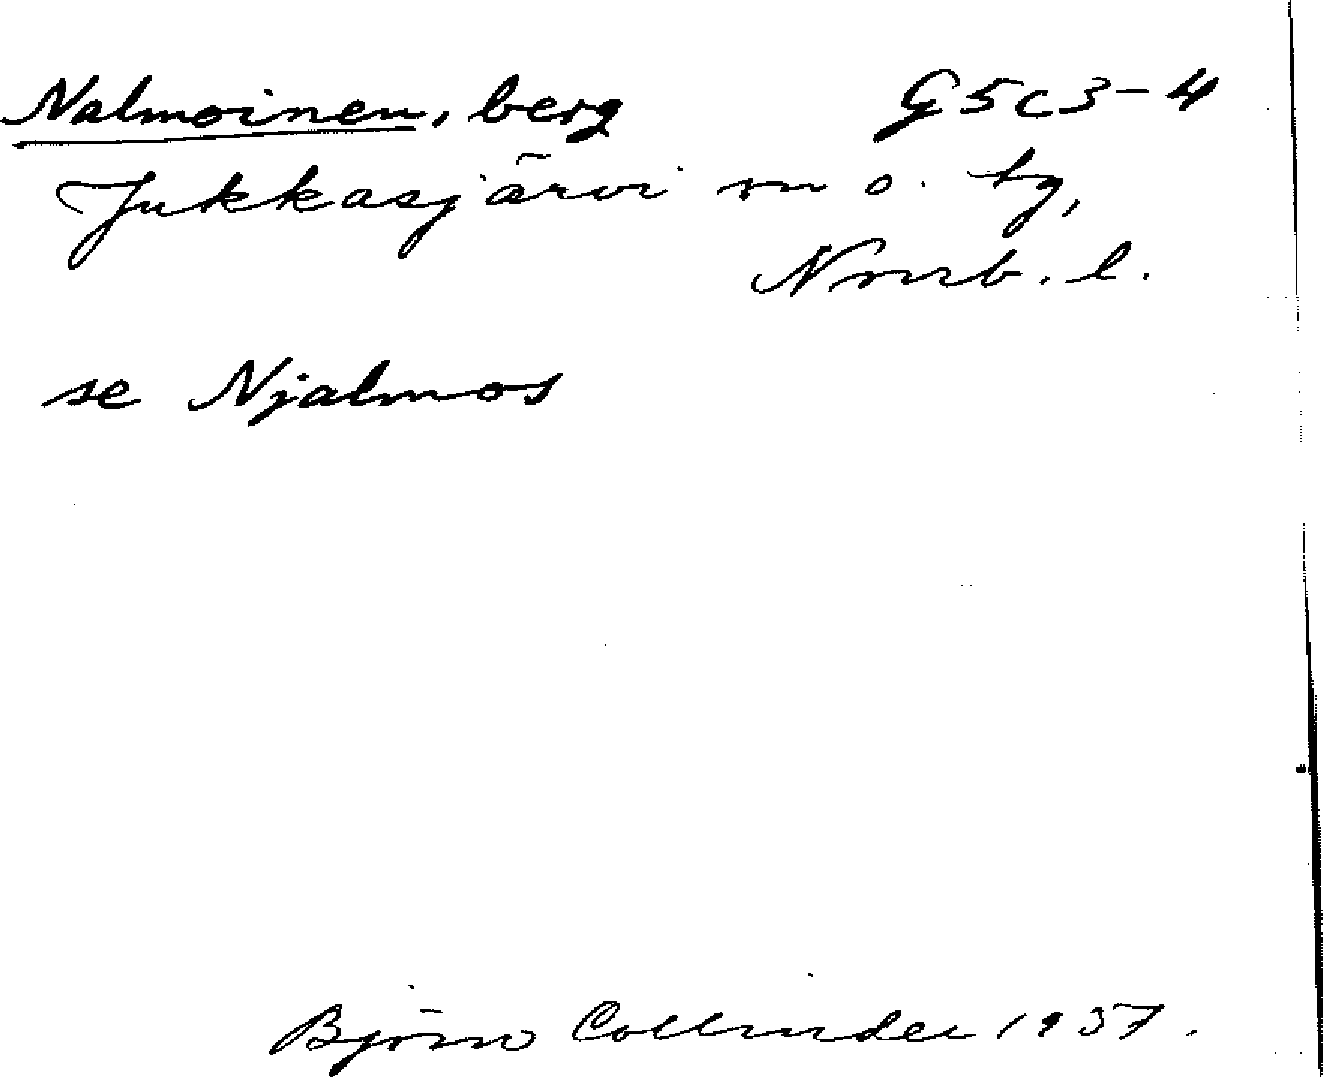 Nalmoinen, berg G5c3-4
Jukkasjärvi sn o. tg,
Norrb. l.
se Njalmos
Björn Collinder 1937.